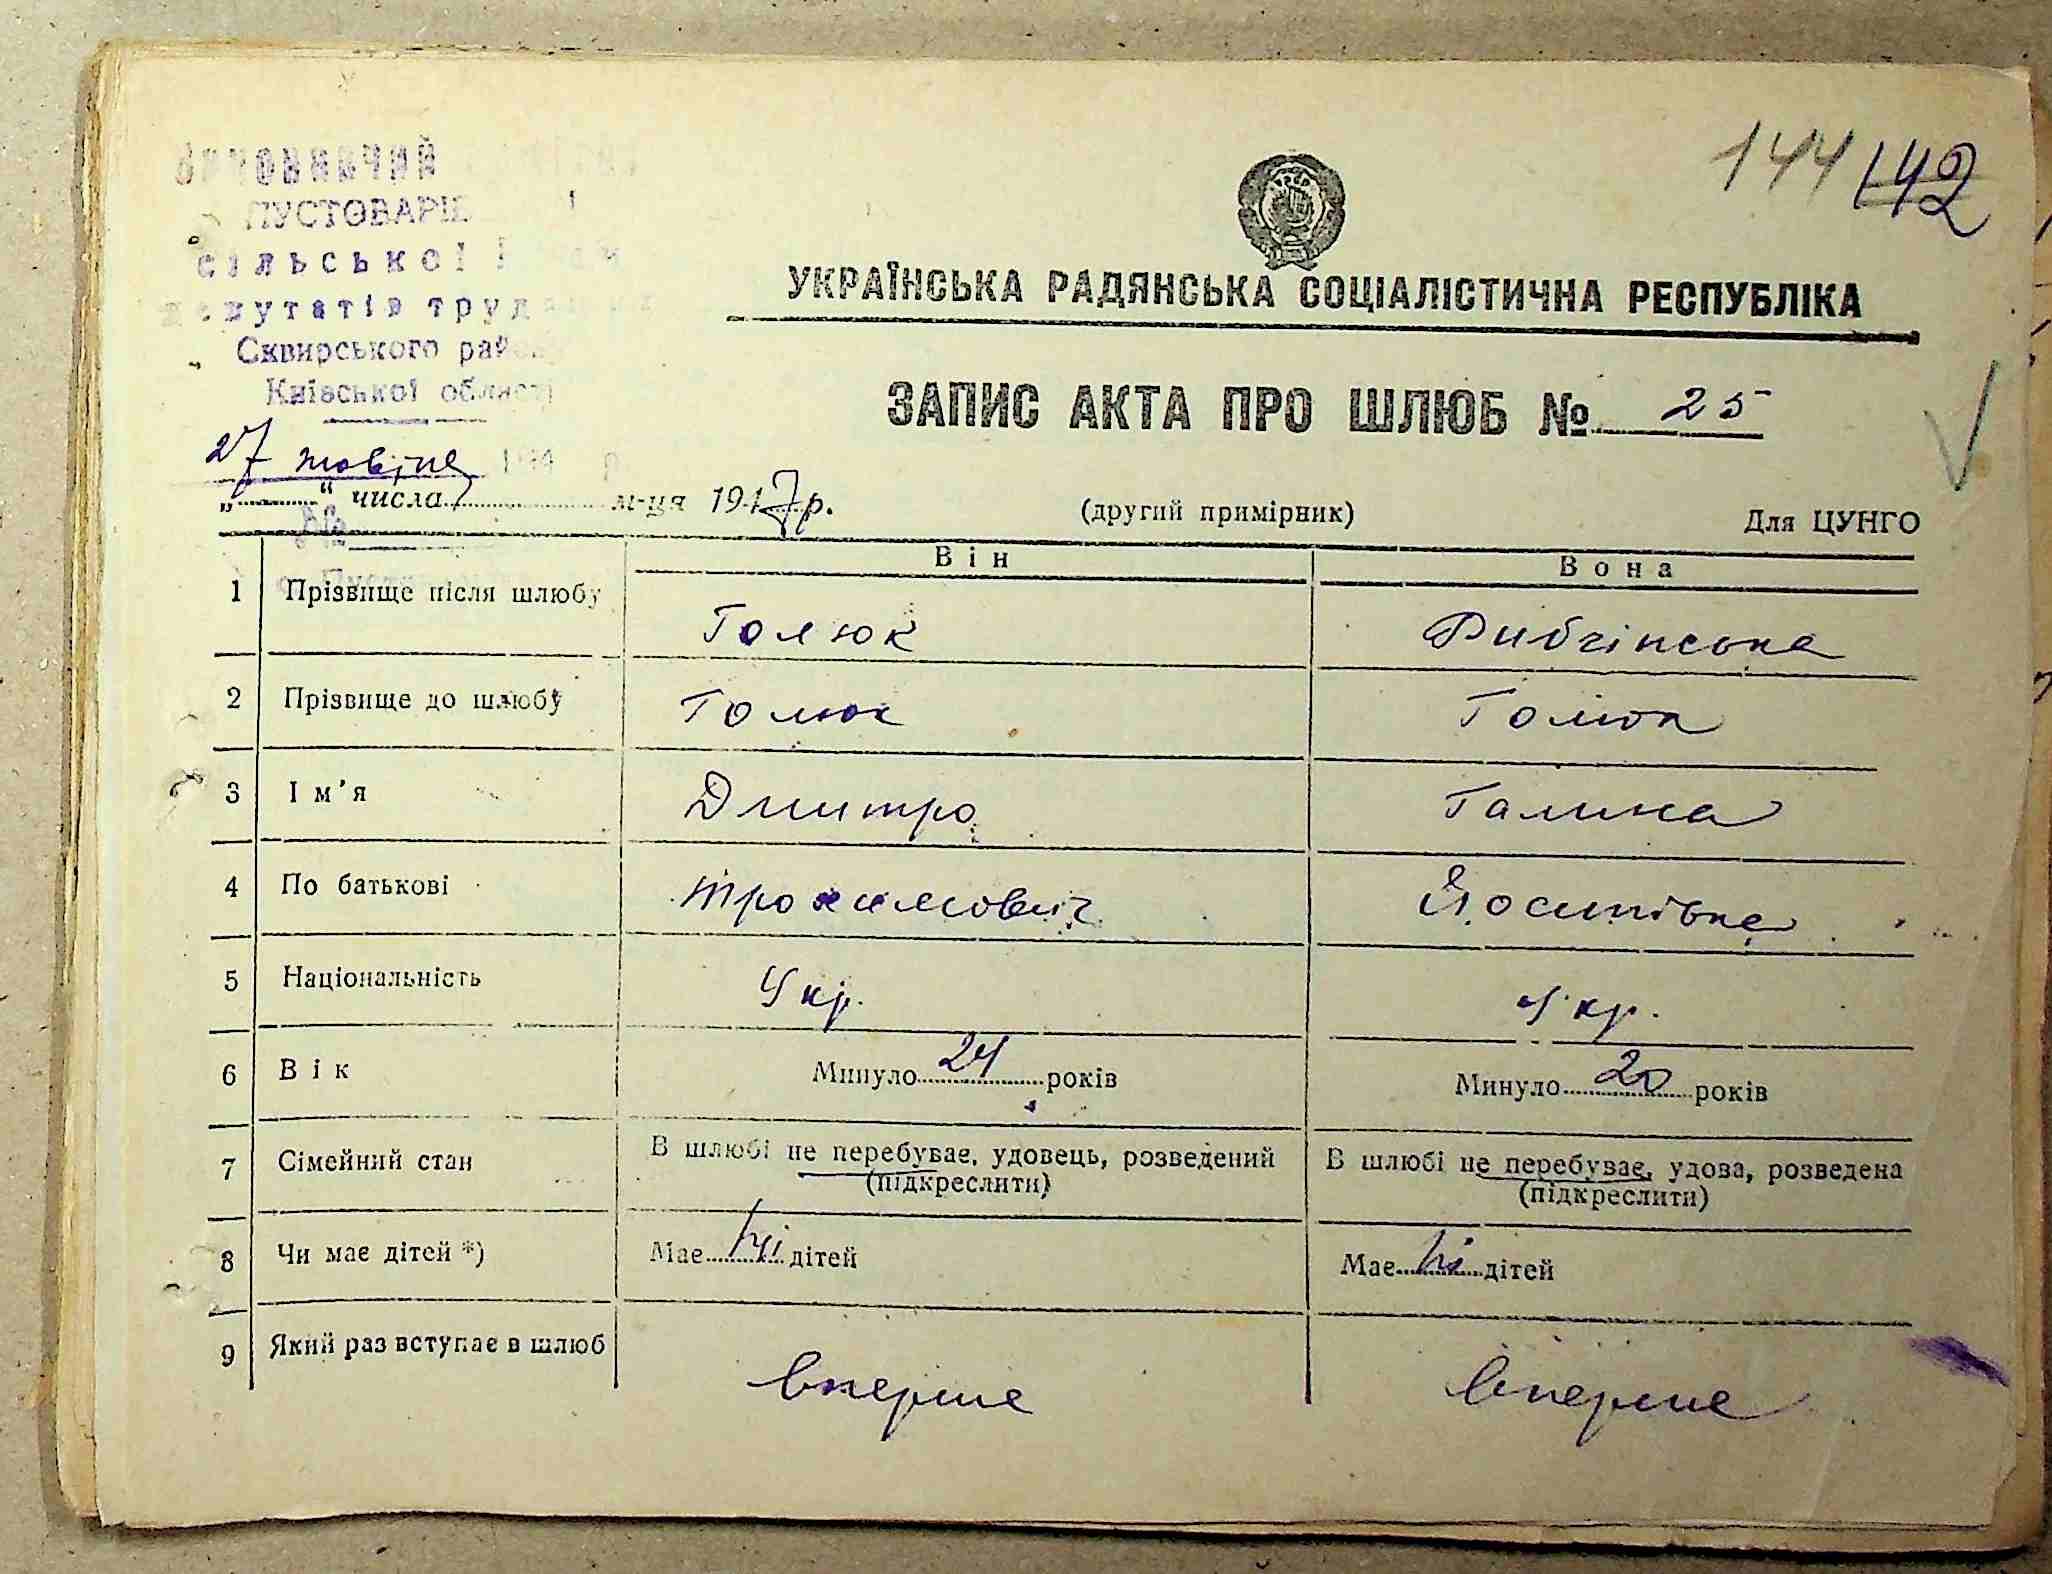 144 142
ВИКОНАВЧИЙ
ПУСТОВАРІВ
сільської
депутатів трудящих
Сквирського району
Київської області
УКРАЇНСЬКА РАДЯНСЬКА СОЦІАЛІСТИЧНА РЕСПУБЛІКА
ЗАПИС АКТА ПРО ШЛЮБ № 25
27 жовтня 194 р
„ “ числа м-ця 1947 р.
(другий примірник)
Для ЦУНГО
Він Вона
1 Прізвище після шлюбу Голюк Рибчінська
2 Прізвище до шлюбу Голюк Голюк
3 Ім’я Дмитро Галина
4 По батькові Трохимович Йосипівна
5 Національність Укр. Укр.
6 Вік Минуло 24 років Минуло 20 років
7 Сімейний стан В шлюбі не перебуває, удовець, розведений В шлюбі не перебуває, удова, розведена
(підкреслити) (підкреслити)
8 Чи має дітей *) Має ні дітей Має ні дітей
9 Який раз вступає в шлюб вперше вперше